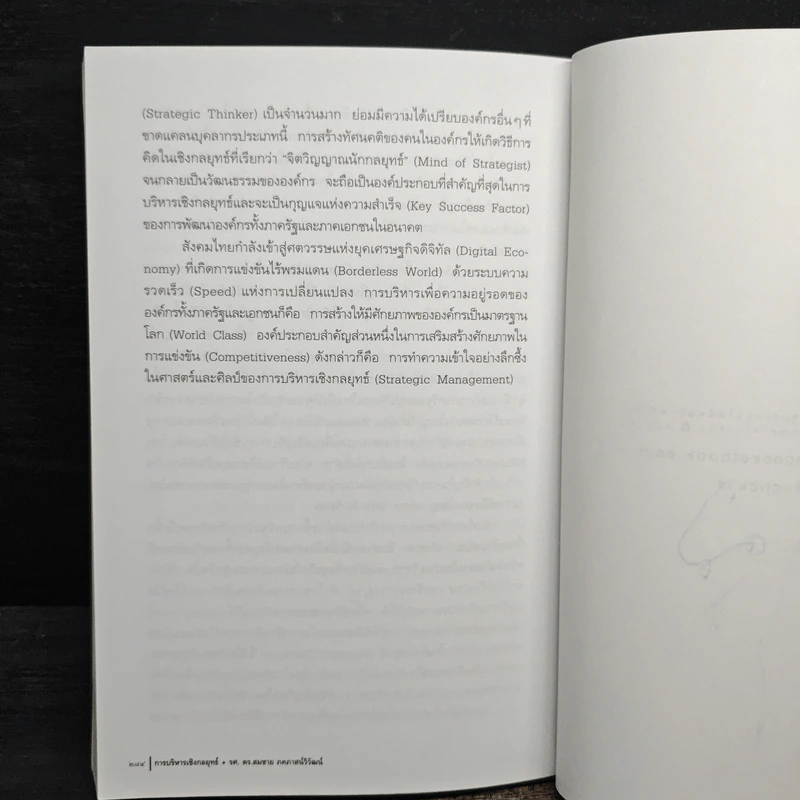 (Strategic Thinker) เป็นจำนวนมาก ย่อมมีความได้เปรียบองค์กรอื่นๆ ที่
ขาดแคลนบุคลากรประเภทนี้ การสร้างทัศนคติของคนในองค์กรให้เกิดวิธีการ
คิดในเชิงกลยุทธ์ที่เรียกว่า “จิตวิญญาณนักกลยุทธ์” (Mind of Strategist)
จนกลายเป็นวัฒนธรรมขององค์กร จะถือเป็นองค์ประกอบที่สำคัญที่สุดในการ
บริหารเชิงกลยุทธ์และจะเป็นกุญแจแห่งความสำเร็จ (Key Success Factor)
ของการพัฒนาองค์กรทั้งภาครัฐและภาคเอกชนในอนาคต
สังคมไทยกำลังเข้าสู่ศตวรรษแห่งยุคเศรษฐกิจดิจิทัล (Digital Eco-
nomy) ที่เกิดการแข่งขันไร้พรมแดน (Borderless World) ด้วยระบบความ
รวดเร็ว (Speed) แห่งการเปลี่ยนแปลง การบริหารเพื่อความอยู่รอดของ
องค์กรทั้งภาครัฐและเอกชนก็คือ การสร้างให้มีศักยภาพขององค์กรเป็นมาตรฐาน
โลก (World Class) องค์ประกอบสำคัญส่วนหนึ่งในการเสริมสร้างศักยภาพใน
การแข่งขัน (Competitiveness) ดังกล่าวก็คือ การทำความเข้าใจอย่างลึกซึ้ง
ในศาสตร์และศิลป์ของการบริหารเชิงกลยุทธ์ (Strategic Management)
๒๘๔ | การบริหารเชิงกลยุทธ์ • รศ. ดร.สมชาย ภคภาสน์วิวัฒน์